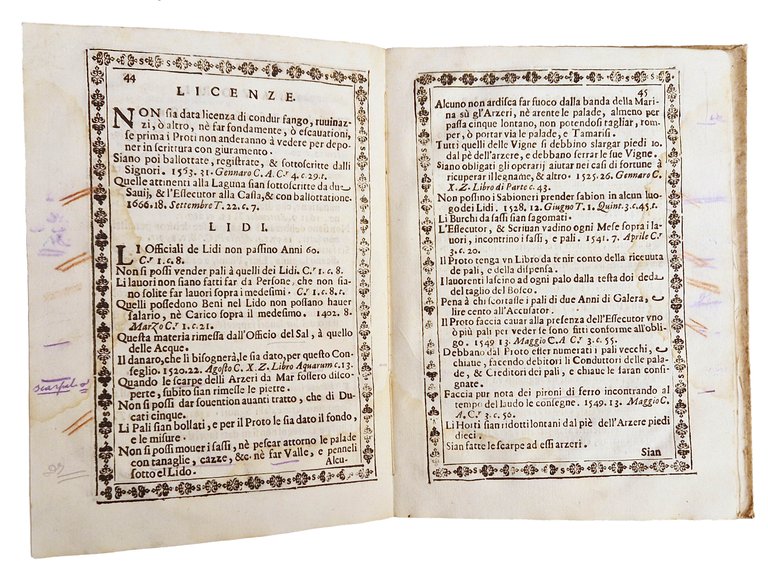 44
LICENZE.
NON sia data licenza di condur fango, ruuinaz-
zi, ò altro, nè far fondamente, ò escauationi,
se prima i Proti non anderanno à vedere per depo-
ner in scrittura con giuramento.
Siano poi ballottate, registrate, & sottoscritte dalli
Signori. 1563. 31. Gennaro C. A. C.º 4. c. 29. t.
Quelle attinenti alla Laguna sian sottoscritte da du
Sauij, & l'Essecutor alla Cassa, & con ballottatione.
1666. 18. Settembre T. 22. c. 7.
LIDI.
LI Officiali de Lidi non passino Anni 60.
C.º 1. c. 8.
Non si possi vender pali à quelli dei Lidi. C.º 1. c. 8.
Li lauori non siano fatti far da Persone, che non sia-
no solite far lauori sopra i medesimi. C.º 1. c. 8.
Quelli possedono Beni nel Lido non possano hauer
salario, nè Carico sopra il medesimo. 1402. 8.
Marzo C.º 1. c. 21.
Questa materia rimessa dall'Officio del Sal, à quello
delle Acque.
Il danaro, che li bisognerà, le sia dato, per questo Con-
seglio. 1520. 22. Agosto C. X. Z. Libro Aquarum c. 13.
Quando le scarpe delli Arzeri da Mar fossero disco-
perte, subito sian rimesse le pietre.
Non si possi dar souention auanti tratto, che di Du-
cati cinque.
Li Pali sian bollati, e per il Proto le sia dato il fondo,
e le misure.
Non si possi mouer i sassi, nè pescar attorno le palade
con tanaglie, cazze, &c. nè far Valle, e penneli
sotto el Lido.
Alcu-
scarpe
45
Alcuno non ardisca far fuoco dalla banda della Mari-
na sù gl'Arzeri, nè arente le palade, almeno per
passa cinque lontano, non potendosi tagliar, rom-
per, ò portar via le palade, e Tamarisi.
Tutti quelli delle Vigne si debbino slargar piedi 10.
dal pè dell'arzere, e debbano serrar le sue Vigne.
Siano obligati gli operarij aiutar nei casi di fortune à
ricuperar il legname, & altro. 1525. 26. Gennaro C.
X. Z. Libro di Parte c. 43.
Non possino i Sabioneri prender sabion in alcun luo-
go dei Lidi. 1528. 12. Giugno T. 1. Quint. 3. c. 45. t.
Li Burchi da sassi sian sagomati.
L'Essecutor, & Scriuan vadino ogni Mese sopra i la-
uori, incontrino i sassi, e pali. 1541. 7. Aprile C.º
3. c.
Il Proto tenga vn Libro da tenir conto della riceuuta
de pali, e della dispensa.
I lauorenti lascino ad ogni palo dalla testa doi deda
del taglio del Bosco.
Pena à chi scortasse i pali di due Anni di Galera, e
lire cento all'Accusator.
Il Proto faccia cauar alla presenza dell'Essecutor vno
ò più pali per veder se sono fitti conforme all'obli-
go. 1549 13. Maggio C. A C.º 3. c. 55.
Debbano dal Proto esser numerati i pali vecchi, e
chiaue, facendo debitori li Conduttori delle pala-
de, & Creditori dei pali, e chiaue le saran con-
signate.
Faccia pur nota dei pironi di ferro incontrando al
tempo del laudo le consegne. 1549. 13. Maggio C.
A. C.º 3. c. 50.
Li Horti sian ridotti lontani dal piè dell'Arzere piedi
dieci.
Sian fatte le scarpe ad essi arzeri.
Sian